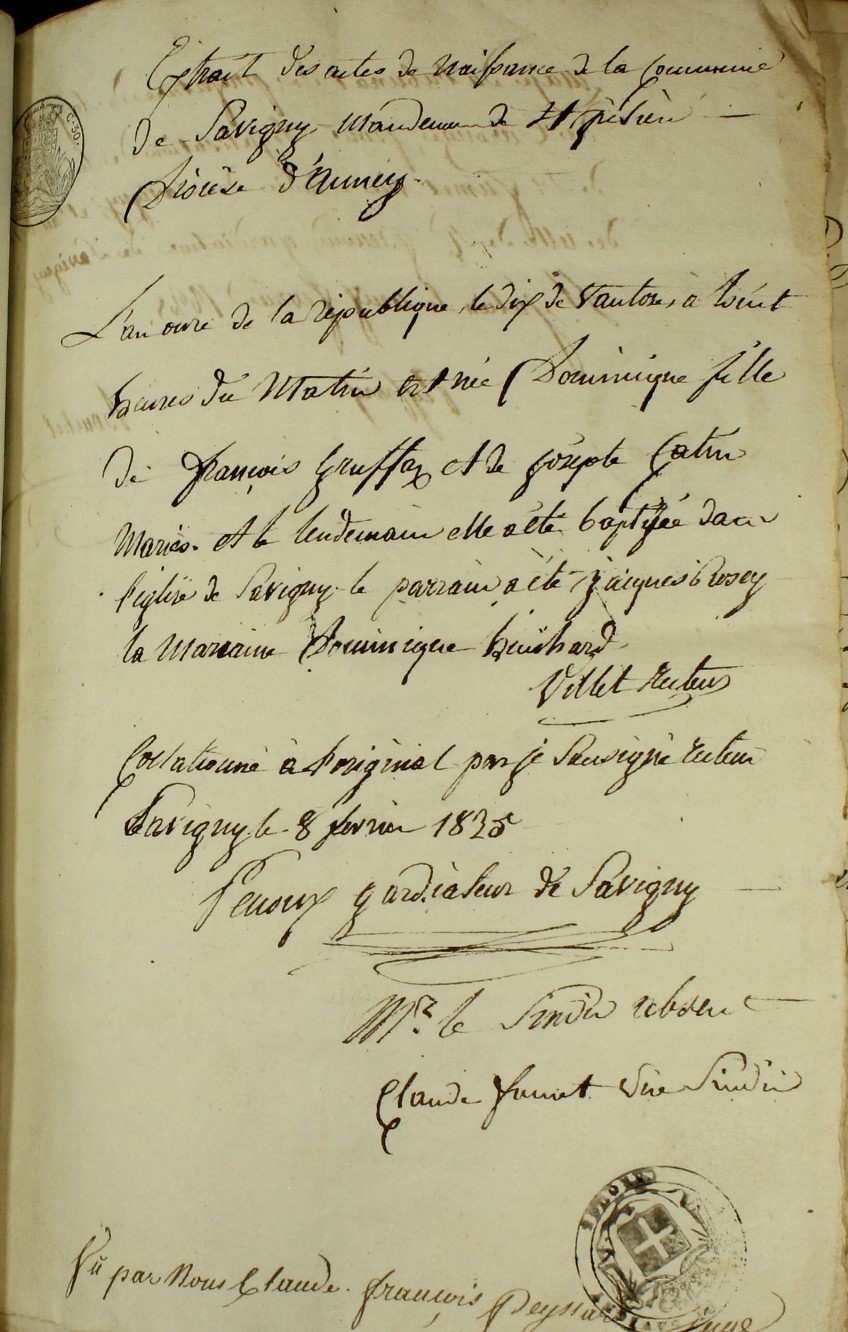 Extrait des actes de naissance de la Commune
de Savigny Mandement de St Julien
Diocèse d'Annecy.
L'an onze de la république, le dix de Vantose, à huit
heures du Matin est née Dominique fille
de françois Gruffaz et de josepte Catin
Mariés. et le lendemain elle a été baptisée dans
l'église de Savigny. le parrain a été jacques Rosey
la Marraine Dominique
Villet recteur
Collationné à l'original par je sousigné recteur
Savigny. le 8 février 1835
gardiateur de Savigny
Mr. le Sindic absent
Claude vice Sindic
Vu par Nous Claude. françois